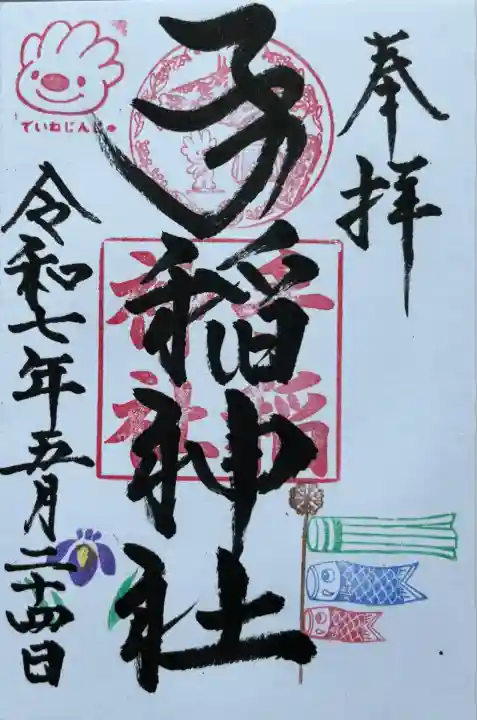 奉拝
手稲神社
手稲神社
ていねじんじゃ
令和七年五月二十四日